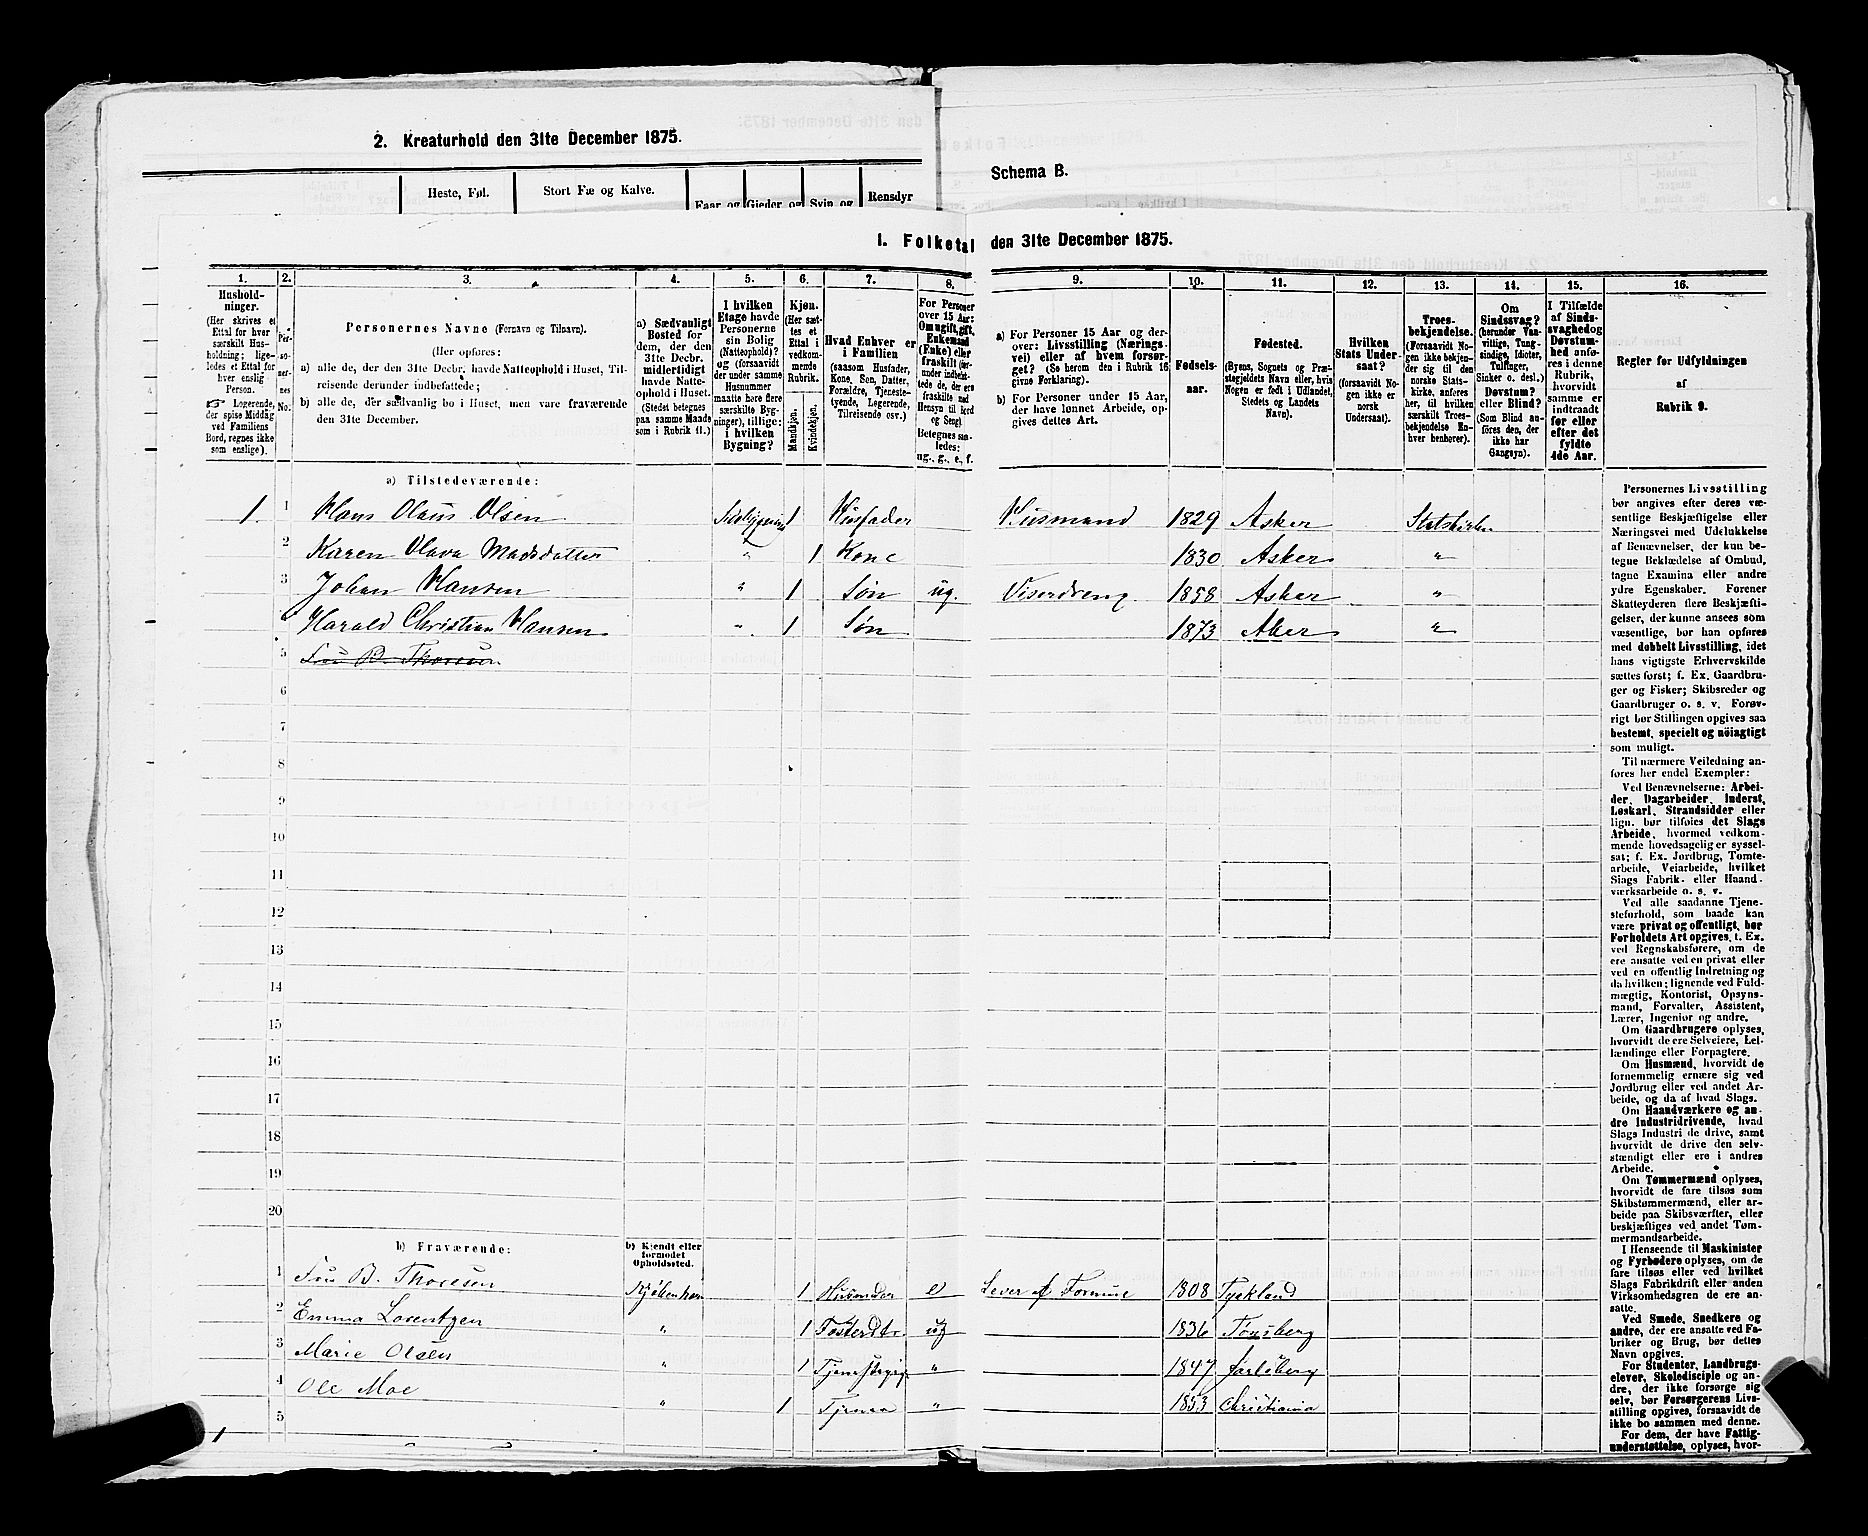 2. Kreaturhold den 31te December 1875.
Heste, Føl.
Stort Fæ og Kalve.
Faar og
Gjeder og
Svin og
Rensdyr
Schema B.
1. Folketal den 31te December 1875.
1. 2. 3. 4. 5. 6. 7. 8. 9. 10. 11. 12. 13. 14. 15. 16.
Hushold-
ninger.
(Her skrives et
Ettal for hver
særskilt Hus-
holdning; lige-
ledes et Ettal for
hver enslig
Person.
Logerende,
der spise Middag
ved Familiens
Bord, regnes ikke
som enslige).
Per-
so-
ner-
nes
No.
Personernes Navne (Fornavn og Tilnavn).
(Her opføres:
a) alle de, der den 31te Decbr. havde Natteophold i Huset, Til-
reisende derunder indbefattede;
b) alle de, der sædvanlig bo i Huset, men vare fraværende
den 31te December.
a) Sædvanligt
Bosted for
dem, der den
31te Decbr.
midlertidigt
havde Natte-
ophold i Huset.
(Stedet betegnes
paa samme Maade
som i Rubrik 11.)
I hvilken
Etage havde
Personerne
sin Bolig
(Natteophold)?
og (forsaavidt
der under samme
Husnummer
maatte høre flere
særskilte Byg-
ninger), tillige:
i hvilken
Bygning?
Kjøn.
(Her sæt-
tes et
Ettal i
vedkom-
mende
Rubrik.
Mandkjøn.
Kvindekjøn.
Hvad Enhver er
i Familien
(saasom Husfader,
Kone, Søn, Datter,
Forældre, Tjeneste-
tyende, Logerende,
Tilreisende osv.)
For Personer
over 15 Aar:
Om ugift, gift,
Enkemand
(Enke) eller
fraskilt (her-
under indbefat-
tede de, der ere
fraskilte med
Hensyn til Bord
og Seng).
Betegnes saa-
ledes:
ug., g., e., f.
a) For Personer 15 Aar og der-
over: Livsstilling (Nærings-
vei) eller af hvem forsør-
get? (Se herom den i Rubrik 16
givne Forklaring).
b) For Personer under 15 Aar,
der have lønnet Arbeide, op-
gives dettes Art.
Fødsels-
aar.
Fødested.
(Byens, Sognets og Præ-
stegjeldets Navn eller, hvis
Nogen er født i Udlandet,
Stedets og Landets
Navn).
Hvilken
Stats Under-
saat?
(forsaavidt No-
gen ikke er
norsk
Undersaat).
Troes-
bekjendelse.
(Forsaavidt No-
gen ikke bekjen-
der sig til den
norske Stats-
kirke, anføres
her, til hvilken
særskilt Troes-
bekjendelse En-
hver henhører).
Om
Sindssvag?
(herunder Van-
vittige, Tung-
sindige, Idioter,
Tullinger,
Sinker o. desl.)
Døvstum?
eller Blind?
(Som Blind an-
føres den, der
ikke har
Gangsyn).
I Tilfælde
af Sinds-
svaghed og
Døvstum-
hed anfø-
res i denne
Rubrik,
hvorvidt
samme er
indtraadt
før eller
efter det
fyldte
4de Aar.
Regler for Udfyldningen
af
Rubrik 9.
a) Tilstedeværende:
1. 1 Hans Olaus Olsen 1 Husfader Husmand 1829 Asker Statskirken
2 Karen Olava Madsdatter " 1 Kone 1830 Asker "
3 Johan Hansen " 1 Søn ug. Viserdreng 1858 Asker "
4 Harald Christian Hansen " 1 Søn 1873 Aker "
5 Fru B. Thoresen
6
7
8
9
10
11
12
13
14
15
16
17
18
19
20
b) Fraværende:
b) Kjendt eller
formodet
Opholdssted.
1 Fru B. Thoresen Kjøbenhavn 1 Husmoder e Lever af Formue 1808 Tyskland
2 Emma Lorentzen " 1 Fosterdtr. ug 1836 Tønsberg
3 Marie Olsen " 1 " 1847 Jarlsberg
4 Ole Moe " 1 " 1853 Christiania
5
Personernes Livsstilling
bør angives efter deres væ-
sentlige Beskjæftigelse eller
Næringsvei med Udelukkelse
af Benævnelser, der kun be-
tegne Beklædelse af Ombud,
tagne Examina eller andre
ydre Egenskaber. Forener
Skatteyderen flere Beskjæfti-
gelser, der kunne ansees som
væsentlige, bør han opføres
med dobbelt Livsstilling, idet
hans vigtigste Erhvervskilde
sættes først; f. Ex. Gaardbru-
ger og Fisker; Skibsreder og
Gaardbruger o. s. v. Forøv-
rigt bør Stillingen opgives saa
bestemt, specielt og nøiagtigt
som muligt.
Til nærmere Veiledning an-
føres her endel Exempler:
Ved Benævnelserne: Arbei-
der, Dagarbeider, Inderst,
Løskarl, Strandsidder eller
lign. bør tilføies det Slags
Arbeide, hvormed vedkom-
mende hovedsagelig er syssel-
sat; f. Ex. Jordbrug, Tomte-
arbeide, Veiarbeide, hvilket
Slags Fabrik- eller Haand-
værksarbeide o. s. v.
Ved alle saadanne Tjene-
steforhold, som baade kan
være privat og offentligt, bør
Forholdets Art opgives, t. Ex.
ved Regnskabsførere, om de
ere ansatte ved en privat eller
ved en offentlig Indretning og
da hvilken; lignende ved Fuld-
mægtig, Kontorist, Opsyns-
mand, Forvalter, Assistent,
Lærer, Ingeniør og andre.
Om Gaardbrugere oplyses,
hvorvidt de ere Selveiere, Lei-
lændinge eller Forpagtere.
Om Husmænd, hvorvidt de
fornemmelig ernære sig ved
Jordbrug eller ved andet Ar-
beide, og da af hvad Slags.
Om Haandværkere og an-
dre Industridrivende, hvad
Slags Industri de drive, samt
hvorvidt de drive den selv-
stændigt eller ere i andres
Arbeide.
Om Tømmermænd oplyses,
hvorvidt de fare tilsøs som
Skibstømmermænd, eller ar-
beide paa Skibsværfter, eller
beskjæftiges ved andet Tøm-
mermandsarbeide.
I Henseende til Maskinister
og Fyrbødere oplyses, om de
fare tilsøs eller ved hvilket
Slags Fabrikdrift eller anden
Virksomhedsgren de ere an-
satte.
Ved Smede, Snedkere og
andre, der ere ansatte ved Fa-
briker og Brug, bør dettes
Navn opgives.
For Studenter, Landbrugs-
elever, Skoledisciple og an-
dre, der ikke forsørge sig
selv, bør Forsørgerens Livs-
stilling opgives, forsaavidt de
ikke bo sammen med denne.
For dem, der have Fattig-
understøttelse, oplyses, hvor-